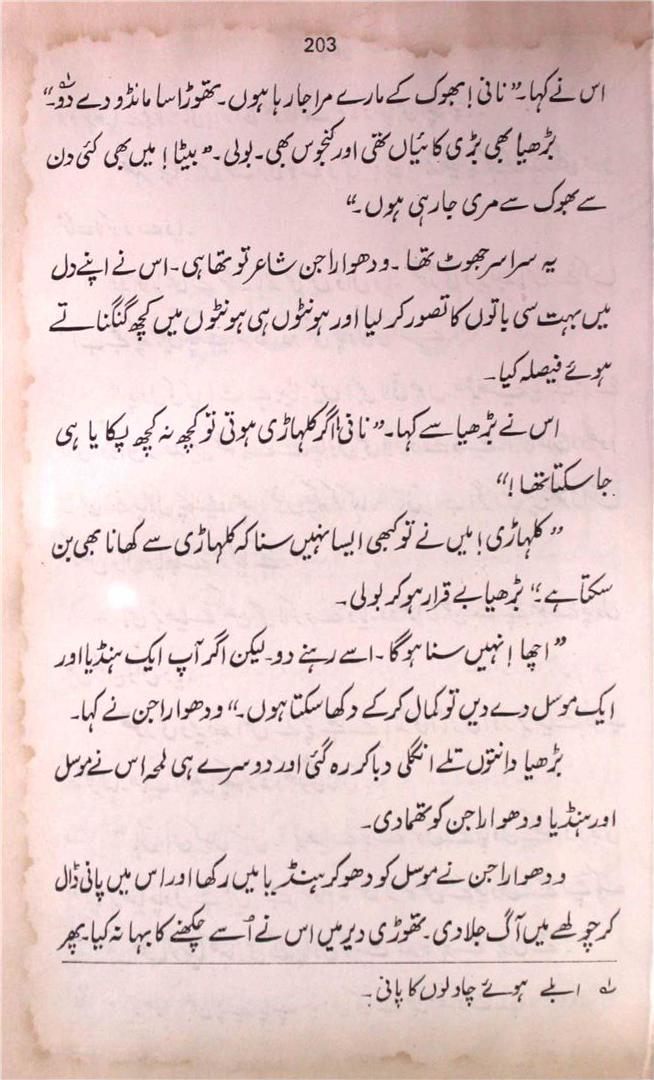 203
اس نے کہا۔ ”نانی! بھوک کے مارے مرا جا رہا ہوں۔ تھوڑا سا مانڈو دے دو۔“ ؎
بڑھیا بھی بڑی کائیاں تھی اور کنجوس بھی۔ بولی۔ ”بیٹا! میں بھی کئی دن
سے بھوک سے مری جا رہی ہوں۔“
یہ سراسر جھوٹ تھا۔ ودھواراجن شاعر تو تھا ہی۔ اس نے اپنے دل
میں بہت سی باتوں کا تصور کر لیا اور ہونٹوں ہی ہونٹوں میں کچھ گنگناتے
ہوئے فیصلہ کیا۔
اس نے بڑھیا سے کہا۔ ”نانی! اگر کلہاڑی ہوتی تو کچھ نہ کچھ پکایا ہی
جا سکتا تھا!“
”کلہاڑی! میں نے تو کبھی ایسا نہیں سنا کہ کلہاڑی سے کھانا بھی بن
سکتا ہے۔“ بڑھیا بے قرار ہو کر بولی۔
”اچھا! نہیں سنا ہوگا۔ اسے رہنے دو۔ لیکن اگر آپ ایک ہنڈیا اور
ایک موسل دے دیں تو کمال کر کے دکھا سکتا ہوں۔“ ودھواراجن نے کہا۔
بڑھیا دانتوں تلے انگلی دبا کر رہ گئی اور دوسرے ہی لمحہ اس نے موسل
اور ہنڈیا ودھواراجن کو تھما دی۔
ودھواراجن نے موسل کو دھو کر ہنڈیا میں رکھا اور اس میں پانی ڈال
کر چولھے میں آگ جلا دی۔ تھوڑی دیر میں اس نے اُسے چکھنے کا بہانہ کیا۔ پھر
؎ ابلے ہوئے چاولوں کا پانی۔